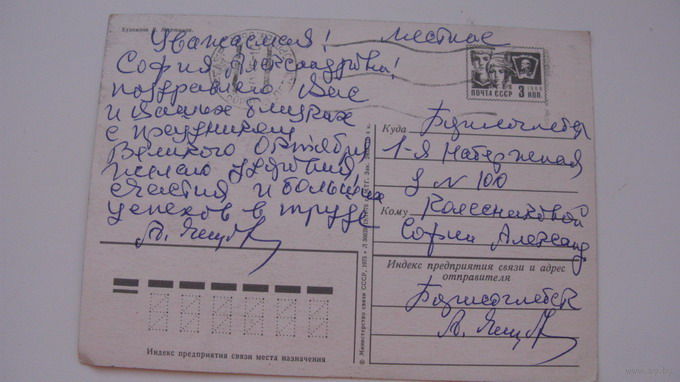 Уважаемая! местное
София Александровна!
поздравляю Вас
и Ваших близких
с праздником
Великого Октября
желаю здоровья,
счастия и больших
успехов в труде
ПОЧТА СССР 3 КОП.
1966
Куда Борисоглебск
1-я Набережная
д N 100
Кому Колесниковой
Софии Александ
Индекс предприятия связи и адрес
отправителя
Борисоглебск
Индекс предприятия связи места назначения
© Министерство связи СССР,